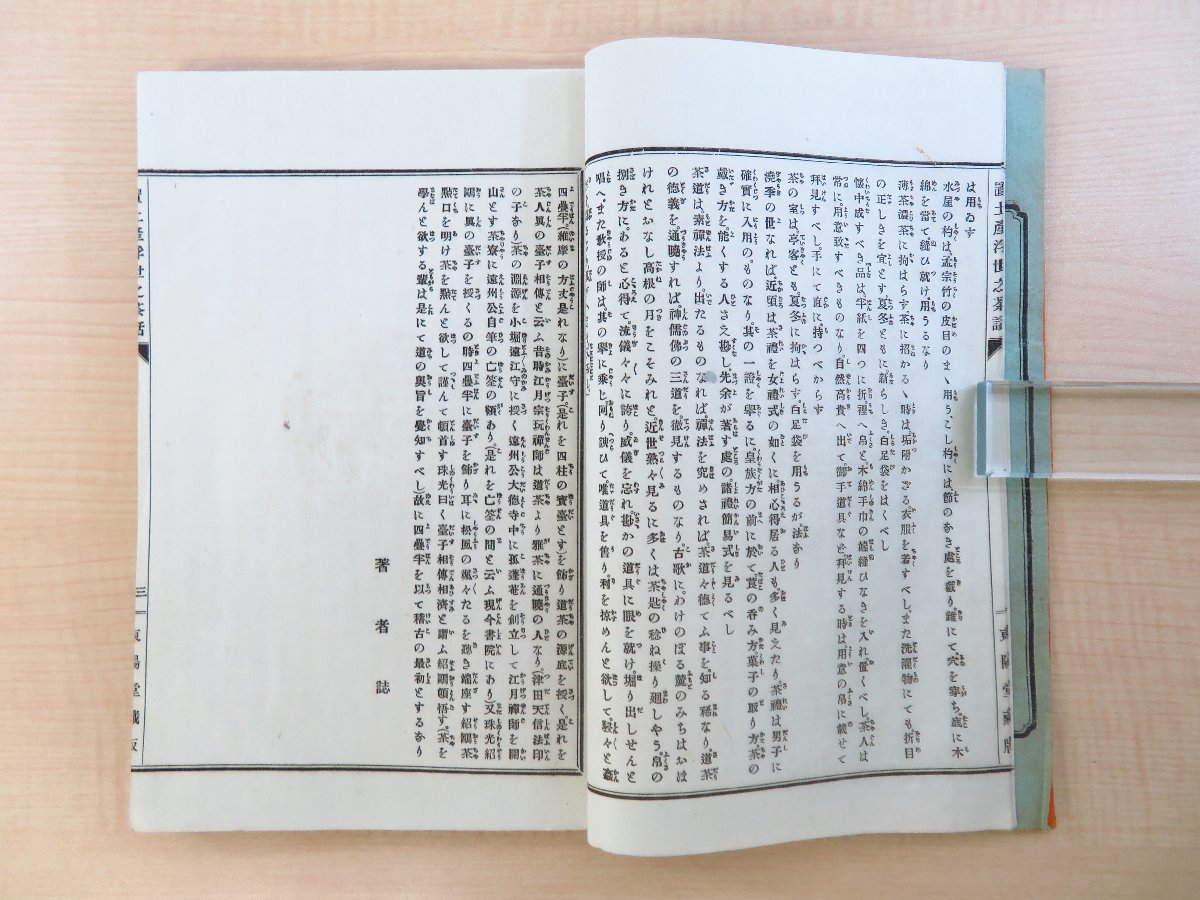 は用ゐす
水屋の杓は孟宗竹の皮目のまゝ用う、こし杓には節のあき處を截り錐にて穴を穿ち底に木
綿を當て縫ひ就け用うるなり
薄茶濃茶に拘はらす茶に招かるゝ時は垢附かざる衣服を着すべし、また洗濯物にても折目
の正しきを宜とす夏冬ともに新らしき、白足袋をはくべし
懷中成すべき品は、半紙を四つに折、裡へ帛と木綿手巾の端縫ひなきを入れ置くべし、茶人は
常に用意致すべきものなり自然高貴へ出て御手道具など拜見する時は用意の帛に載せて
拜見すべし、手にて直に持つべからす
茶の室は、亭客とも、夏冬に拘はらす、白足袋を用うるが法あり
澆季の世なれば、近頃は茶禮を女禮式の如くに相心得居る人も、多く見えたり、茶禮は男子に
確實に入用の、ものなり、其の一證を擧るに、皇族方の前に於て莨の呑み方菓子の取り方茶の
戴き方を、能くする人さえ尠し、先余が著す處の諸禮簡易式を見るべし
茶道は、素禪法より、出たるものなれば、禪法を究めされば茶道々德てふ事を、知る稀なり道茶
の德義を通曉すれば神儒佛の三道を、徹見するものなり、古歌に、わけのぼる麓のみちはおほ
けれとおなし高根の月をこそみれと、近世熟々見るに多くは茶匙の稔ね操り廻しやう帛の
捌き方に、あると心得て流儀々々に誇り、威儀を忘れ、尠かの道具に眼を就け、堀り出しせんと
唱へ、また敎授の師は、其の擧に乘し、囘り諛ひて、唯道具を售り、利を掠めんと欲して、駸々と姦
四疊半(維摩の方丈是れなり)に臺子、(是れを四柱の寳臺とす)を飾り道茶の源底を授く、是れを
茶人眞の臺子相傳と云ふ昔時江月宗玩禪師は道茶より雅茶に通曉の人なり、(津田天信法印
の子あり)茶の淵源を小堀遠江守に授く遠州公大德寺中に孤蓬菴を創立して江月禪師を開
山とす茶寮に遠州公自筆の亡筌の額あり、(是れを亡筌の間と云ふ現今書院にあり)又珠光紹
鷗に眞の臺子を授くるの時四疊半に臺子を飾り耳に松風の颯々たるを聽き端座す紹鷗茶
點口を明け茶を點んと欲して謹んて頓首す珠光曰く臺子相傳相濟と謂ふ紹鷗頓悟す、(茶を
學んと欲する輩は是にて道の奧旨を覺知すべし)故に四疊半を以て稽古の最初とするあり
著者誌
三
東陽堂藏版